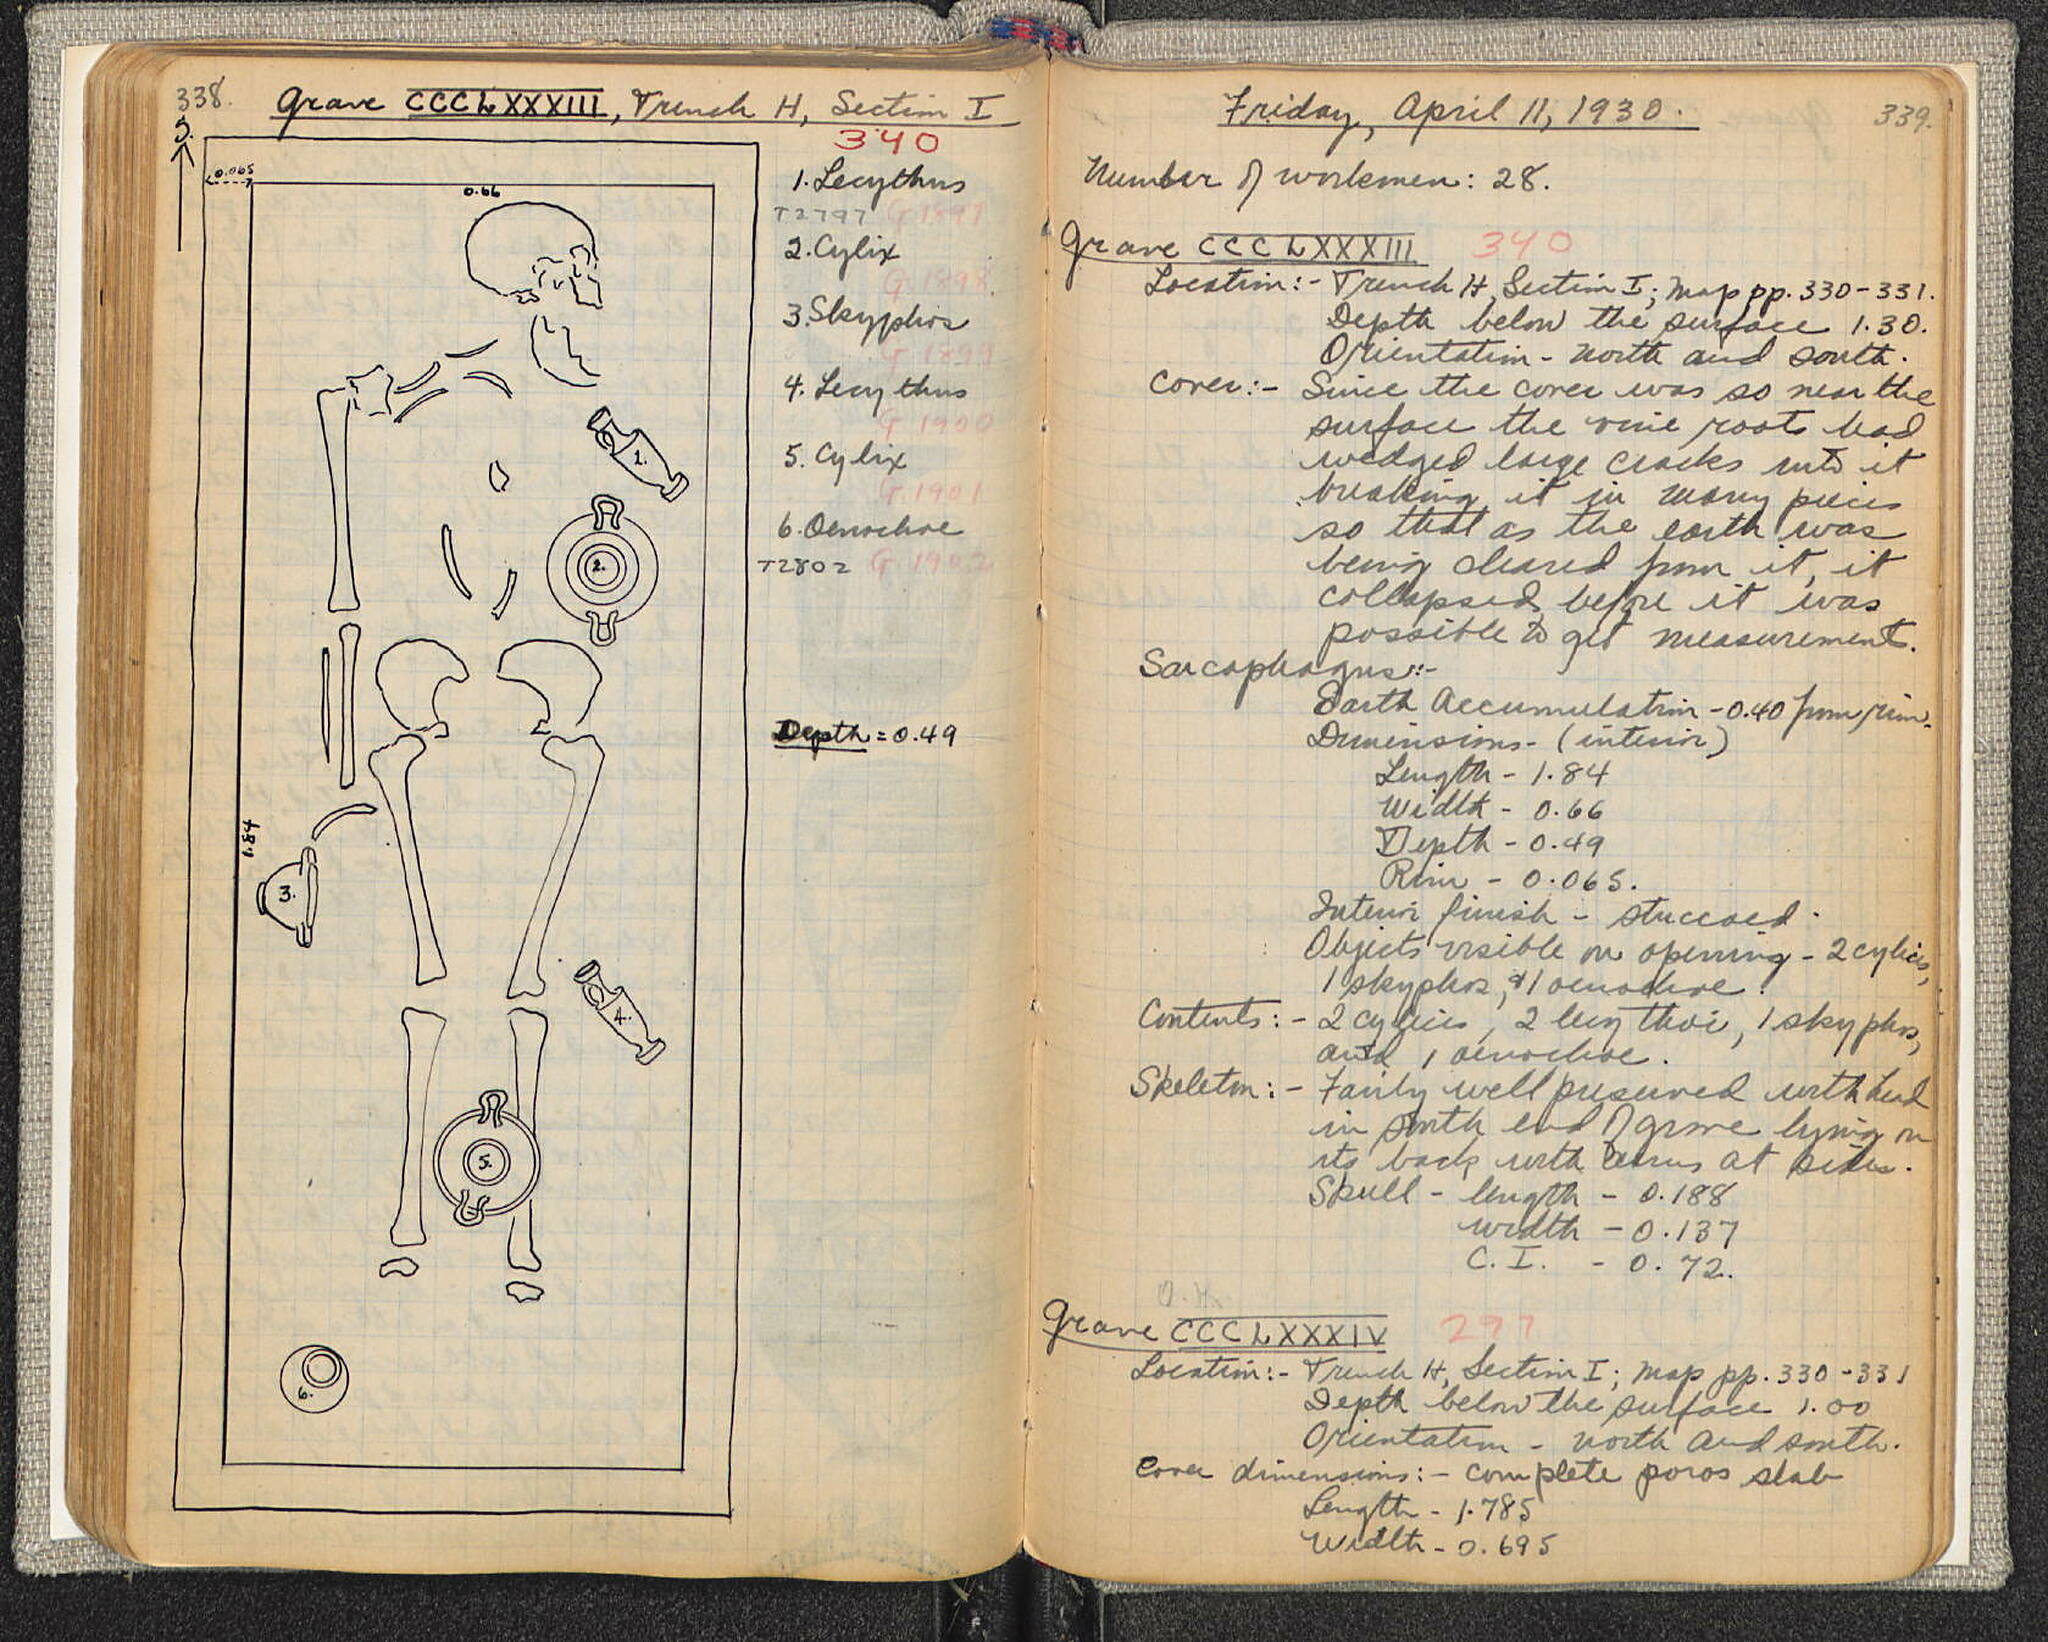 338.
Grave CCCLXXXIII, Trench H, Section I
S.
340
0.065
0.66
1. Lecythus
T2797 G 1897
2. Cylix
G 1898
3. Skyphos
G 1899
4. Lecythus
G 1900
5. Cylix
G 1901
6. Oenochoe
T2802 G 1902
Depth = 0.49
1.84
1.
2.
3.
4.
5.
6.
Friday, April 11, 1930.
339.
Number of workmen: 28.
Grave CCCLXXXIII 340
Location:- Trench H, Section I; Map pp. 330-331.
Depth below the surface 1.30.
Orientation - North and South.
Cover:- Since the cover was so near the
surface the vine roots had
wedged large cracks into it
breaking it in many pieces
so that as the earth was
being cleared from it, it
collapsed before it was
possible to get measurement.
Sarcophagus:-
Earth Accumulation - 0.40 from rim.
Dimensions - (interior)
Length - 1.84
Width - 0.66
Depth - 0.49
Rim - 0.065.
Interior finish - stuccoed.
Objects visible on opening - 2 cylices,
1 skyphos, & 1 oenochoe.
Contents:- 2 cylices, 2 lecythoi, 1 skyphos,
and 1 oenochoe.
Skeleton:- Fairly well preserved with head
in south end of grave lying on
its back with arms at sides.
Skull - length - 0.188
width - 0.137
C. I. - 0.72.
O.K.
Grave CCCLXXXIV 297
Location:- Trench H, Section I; Map pp. 330-331
Depth below the surface 1.00
Orientation - North and South.
Cover dimensions:- complete poros slab
Length - 1.785
Width - 0.695